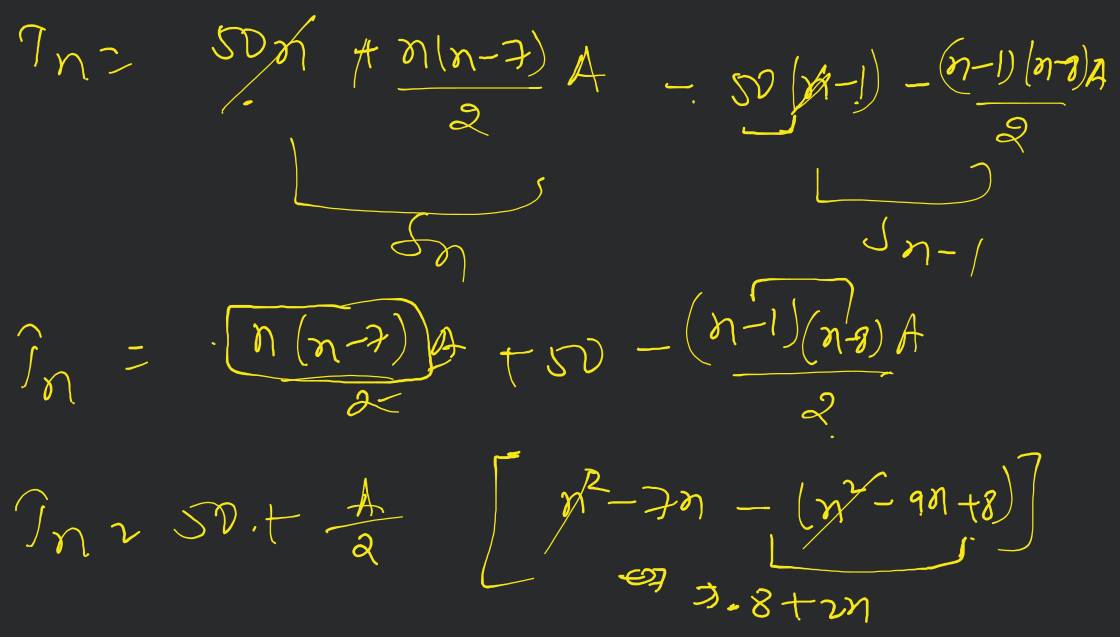 Tn = 50n + n(n-7)/2 A - 50(n-1) - (n-1)(n-8)A/2
Sn Sn-1
Tn = n(n-7)A/2 + 50 - (n-1)(n-8)A/2
Tn = 50 + A/2 [n² - 7n - (n² - 9n + 8)]
⇒ -8 + 2n